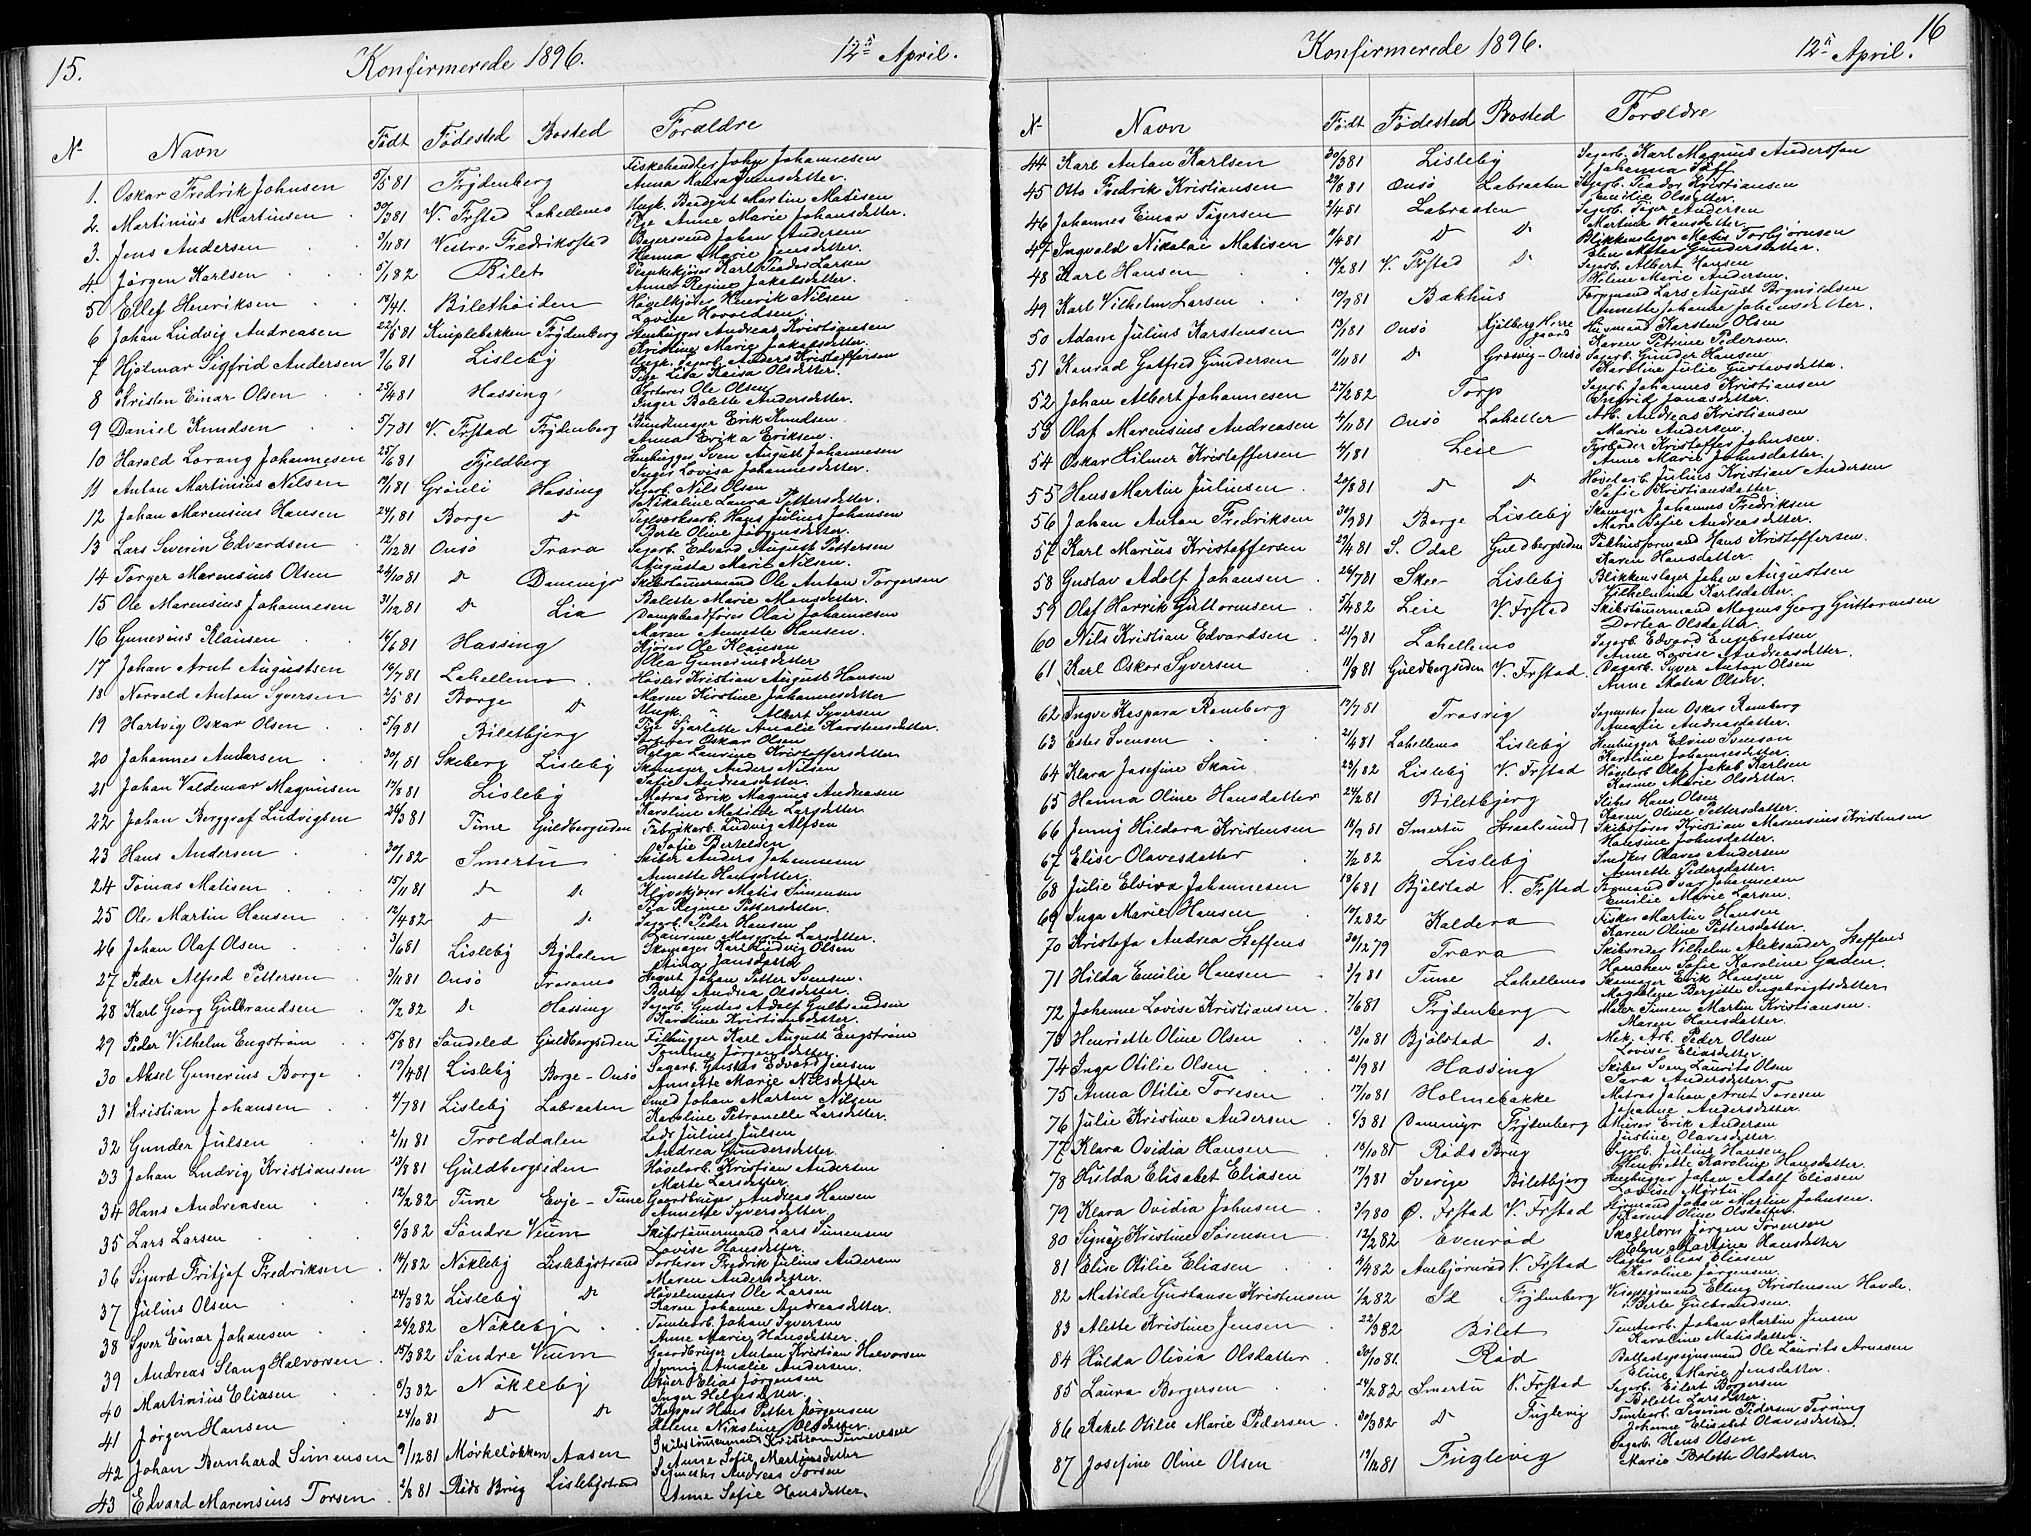 15.
Konfirmerede 1896.
12te April.
No Navn Födt Födested Bosted Forældre
1. Oskar Fredrik Johnsen 5/5 81 Frydenberg Fiskehandler John Johannesen
Anna Kaisa Jonsdatter.
2. Martinius Martinsen 30/3 81 V. Frstad Lahellemo Ungk. Martin Matisen
Pige Anne Marie Johansdatter.
3. Jens Andersen 3/11 81 Vestre Fredriksstad Johan Andersen
Hanna Marie Jensdatter.
4 Jørgen Karlsen 5/1 82 Bilet Karl Teodor Larsen
Anne Regine Jakobsdatter.
5 Ellef Henriksen Bilethöiden Hövelkjörer Henrik Nilsen
Lovise
6 Johan Ludvig Andreasen 22/5 81 Kniplebakken Frydenberg Stenhugger Andreas Kristiansen
Kristine Marie Jakobsdatter.
7 Hjalmar Sigfrid Andersen 7/6 81 Lisleby Ungk. Sagarb. Anders Kristoffersen
Pige Lisa Kaisa Olsdatter.
8 Kristen Einar Olsen 25/4 81 Hassing Sorterer Ole Olsen
Inger Bolette Andersdatter.
9 Daniel Knudsen 5/7 81 V. Frstad Frydenberg Bundtmager Erik Knudsen
Anna Erika Eriksen.
10 Harald Lorang Johannesen 25/6 81 Fjeldberg Stenhugger Sven August Johannesen
Inger Lovisa Johannesdatter.
11 Anton Martinius Nilsen 19/1 81 Grönli Hassing Sagarb. Nils Olsen
Nikoline Laura Pettersdatter.
12 Johan Marensius Hansen 24/1 81 Borge do Teglverksarb. Hans Julius Johansen
Berte Oline Jörgensdatter.
13 Lars Severin Edvardsen 12/12 81 Onsö Trara Sagarb. Edvard August Pettersen
Augusta Marie Nilsen.
14 Torger Marensius Olsen 24/10 81 do Damnigr Skibstömmermand Ole Anton Torgersen
Bolette Marie Hansdatter.
15 Ole Marensius Johannesen 31/12 81 do Lia Dampbaadförer Olai Johannesen
Maren Annette Hansen.
16 Gunerius Klausen 14/6 81 Hassing Kjörer Ole Klausen
Olea Guneriusdatter
17 Johan Arnt Augustsen 16/7 81 Lahellemo Høsler Kristian August Hansen
Maren Kirstine Johannesdatter
18 Norvald Anton Syversen 2/5 81 Borge do Ungk. Albert Syversen
Pige Sjarlotte Amalie Karstensdatter.
19 Hartvig Oskar Olsen 5/9 81 Biletbjerg Sorterer Oskar Olsen
Helga Laurine Kristoffersdatter
20 Johannes Andersen 30/1 81 Skeberg Lisleby Skomager Anders Nilsen
Sofie Andreasdatter
21 Johan Valdemar Magnusen 17/8 81 Lisleby Matros Erik Magnus Andreasen
Karoline Matilde Larsdatter
22 Johan Berggraf Ludvigsen 26/3 81 Tune Guldbergsiden Fabrikarb. Ludvig Alfsen
Sofie Bertelsen
23 Hans Andersen 30/1 82 Smertu Skiber Anders Johannesen
Annette Hansdatter.
24 Tomas Matisen 15/11 81 do do Klövekjörer Matis Simensen
Pia Regine Pettersdatter.
25 Ole Martin Hansen 12/4 82 do do Sagarb. Peder Hansen
Laurine Margrete Larsdatter.
26 Johan Olaf Olsen 3/6 81 Lisleby Bydalen Skomager Karl Ludvig Olsen
Stina Jansdatter
27 Peder Alfred Pettersen 3/11 81 Onsö Traramo Johan Petter Svensen.
Berte Andrea Olsdatter.
28 Karl Georg Gulbrandsen 19/2 82 do Hassing Sagarb. Gustav Adolf Gulbrandsen
Karoline Kristiansdatter.
29 Peder Vilhelm Engström 15/8 81 Söndeled Guldbergsiden Filhugger Karl August Engström
Tomine Jörgensdatter.
30 Aksel Gunerius Borge 19/4 81 Lisleby Borge - Onsö Sagarb. Gustav Edvard Jensen
Annette Marie Nilsdatter
31 Kristian Johansen 4/7 81 Lisleby Labraaten Smed Johan Martin Nilsen
Karoline Petronelle Larsdatter.
32 Gunder Julsen 2/11 81 Trolddalen Lods Julius Julsen
Andrea Gundersdatter.
33 Johan Ludvig Kristiansen 13/8 81 Guldbergsiden Hövelarb. Kristian Andersen
Marte Larsdatter.
34 Hans Andreasen 12/2 82 Tune Evje - Tune Gaardbruger Andreas Hansen
Annette Syversdatter.
35 Lars Larsen 6/3 82 Söndre Veum Skibstömmermand Lars Simensen
Lovise Hansdatter.
36 Sigurd Fritjof Fredriksen 14/1 82 Nökleby Lislebystrand Sorterer Fredrik Julius Andersen
Maren Andersdatter.
37 Julius Olsen 24/3 82 Lisleby do Hövelmester Ole Larsen
Karen Johanne Andreasdatter.
38 Syver Einar Johansen 24/2 82 Nökleby Tomtearb. Johan Syversen
Anne Marie Hansdatter.
39 Andreas Slang Halvorsen 15/3 82 Söndre Veum Gaardbruger Anton Kristian Halvorsen
Jenny Amalie Andersen.
40 Martinius Eliasen 6/3 82 Nökleby Elias Jörgensen
Inger Helgesdatter.
41 Jörgen Hansen 24/10 81 do do Hans Petter Jörgensen
Helene Nikoline Olsdatter.
42 Johan Bernhard Simensen 9/12 81 Mørkeløkken Aasen Skibstömmermand Kristian Simensen
Anne Sofie Martinsdatter
43 Edvard Marensius Torsen 2/8 81 Röds Brug Lislebystrand Sagmester Andreas Torsen
Anne Sofie Hansdatter.
16
Konfirmerede 1896.
12te April.
No Navn Födt Födested Bosted Forældre
44 Karl Anton Karlsen 30/3 81 Lisleby Sagarb. Karl Magnus Anderson
Johanna Töff
45 Otto Fredrik Kristiansen 29/8 81 Onsö Labraaten Sagarb. Teodor Kristiansen
Emilie Olsdatter.
46 Johannes Einar Tigersen 2/4 81 Labraaten Sagarb. Tiger Andersen
Martine Hansdatter.
47 Ingvald Nikolai Matisen 11/4 81 do do Blikkenslager Matis Torbjörnsen
Elen Matea Gundersdatter.
48 Karl Hansen 14/2 81 V. Frstad do Sagarb. Albert Hansen
Helene Marie Andersen.
49 Karl Vilhelm Larsen 19/9 81 Bakhus Lars August Brynildsen
Annette Johanne Johansdatter.
50 Adam Julius Karstensen 13/1 81 Onsö Kjölberg Herregaard Husmand Karsten Olsen
Karen Petrine Pedersen.
51 Konrad Gotfred Gundersen 11/11 81 do Gressvig - Onsö Sagarb. Gunder Hansen
Karoline Julie Gustavsdatter.
52 Johan Albert Johannesen 27/2 82 Torp Sagarb. Johannes Kristiansen
Ingrid Jonasdatter.
53 Olaf Marensius Andreasen 4/11 81 Onsö Laheller Arb. Andreas Kristiansen
Marie Andersen.
54 Oskar Hilmer Kristoffersen 4/1 81 Leie Fyrböder Kristoffer Johnsen.
Anne Marie Johnsdatter.
55 Hans Martin Juliusen 20/8 81 do do Hövelarb. Julius Kristian Andersen
Sofie Kristiansdatter
56 Johan Anton Fredriksen 30/9 81 Borge Lisleby Skomager Johannes Fredriksen
Marie Sofie Andreasdatter.
57 Karl Marius Kristoffersen 23/4 81 S. Odal Guldbergsiden Pakhusformand Hans Kristoffersen.
Karen Hansdatter.
58 Gustav Adolf Johansen 26/7 81 Skee Lisleby Blikkenslager Johan Augustsen
Vilhelmine Karlsdatter.
59 Olaf Henrik Guttormsen 5/4 82 Leie V. Frstad Skibstömmermand Magnus Georg Guttormsen
Dortea Olsdatter.
60 Nils Kristian Edvardsen 21/9 81 Lahellemo Sagarb. Edvard Engebretsen
Anne Lovise Andreasdatter.
61 Karl Oskar Syversen 11/8 81 Guldbergsiden V. Frstad. Dagarb. Syver Anton Olsen
Anne Matea Olsen.
62 Ingve Kaspara Ramberg 17/7 81 Trosvig Sagmester Jan Oskar Ramberg
Amalie Andreasdatter.
63 Ester Svensen 21/4 81 Lahellemo Lisleby Stenhugger Edvin Svenson
Karoline Johannesdatter.
64 Klara Josefine Skau 23/1 82 Lisleby V. Frstad Hövlarb. Olaf Jakob Karlsen
Karine Marie Olsdatter.
65 Hanna Oline Hansdatter 24/2 81 Biletbjerg Sliber Hans Olsen
Karen Oline Pettersdatter.
66 Jenny Hildora Kristensen 18/9 81 Smertu Straalsund Skibsförer Kristian Marensius Kristensen
Halesine Johnsdatter.
67 Elise Olavesdatter 7/2 82 Lisleby Snedker Olaves Andersen
Annette Pedersdatter.
68 Julie Elvira Johannesen 18/6 81 Bjölstad V. Frstad Sagmand Ivar Johannesen
Emilie Marie Larsen.
69 Inga Marie Hansen 14/2 82 Kaldera Fisker Martin Hansen
Karen Oline Pettersdatter.
70 Kristofa Andrea Steffens 30/12 79 Trara Skibsreder Vilhelm Aleksander Steffens
Hanchen Sofie Karoline Gaden.
71 Hilda Emilie Hansen 3/9 81 Tune Lahellemo Skomager Erik Hansen
Magdalene Bergitte Ingebrigtsdatter
72 Johanne Lovise Kristiansen 7/6 81 Frydenberg Maler Simen Martin Kristiansen.
Maren Hansdatter.
73 Henriette Oline Olsen 13/10 81 Bjölstad do. Mek. Arb. Peder Olsen
Lovise Eliasdatter.
74 Inga Otilie Olsen 21/9 81 Hassing Skiber Sven Laurits Olsen
Sara Andersdatter.
75 Anna Otilie Toresen 17/10 81 Holmebakke Matros Johan Arnt Toresen
Johanne Andersdatter.
76 Julie Kristine Andersen 6/3 81 Damnigr Frydenberg Murer Erik Andersen
Justine Olavesdatter.
77 Klara Ovidia Hansen 18/10 81 Röds Brug Sagarb. Julius Hansen
Henriette Karoline Hansdatter.
78 Hulda Elisabet Eliasen 17/9 81 Sverige Biletbjerg Stenhugger Johan Adolf Eliasen
Lovise
79 Klara Ovidia Johnsen 3/9 80 Ö. Frstad V. Frstad Styrmand Johan Martin Johnsen.
Karen Oline Olsdatter.
80 Signy Kristine Sörensen 12/2 82 Evenröd Skolelærer Jörgen Sörensen
Elen Martine Hansdatter
81 Elise Otilie Eliasen 19/4 82 Aubjörnrød V. Frstad Slagter Elias Eliasen
Karoline Jörgensen.
82 Matilde Gustanse Kristensen 1/2 82 Id Frydenberg Elling Kristensen Hovde.
Berte Gulbrandsen.
83 Alette Kristine Jensen 22/3 82 Bilet Tomtearb. Johan Martin Jensen
Karoline Matisdatter.
84 Hulda Olivia Olsdatter 30/10 81. Röd Ole Laurits Arnesen
Eline Marie Jensdatter.
85 Laura Borgersen 24/2 82 Smertu V. Frstad Sagarb. Eilert Borgersen
Bolette Larsdatter.
86 Rakel Otilie Marie Pedersen 30/3 82 do Fuglevig Tomtearb. Severin Pedersen
Johanne Elisabet Olavesdatter.
87 Josefine Oline Olsen 19/12 81 Fuglevig Sagarb. Hans Olsen
Marie Bolette Olsdatter.